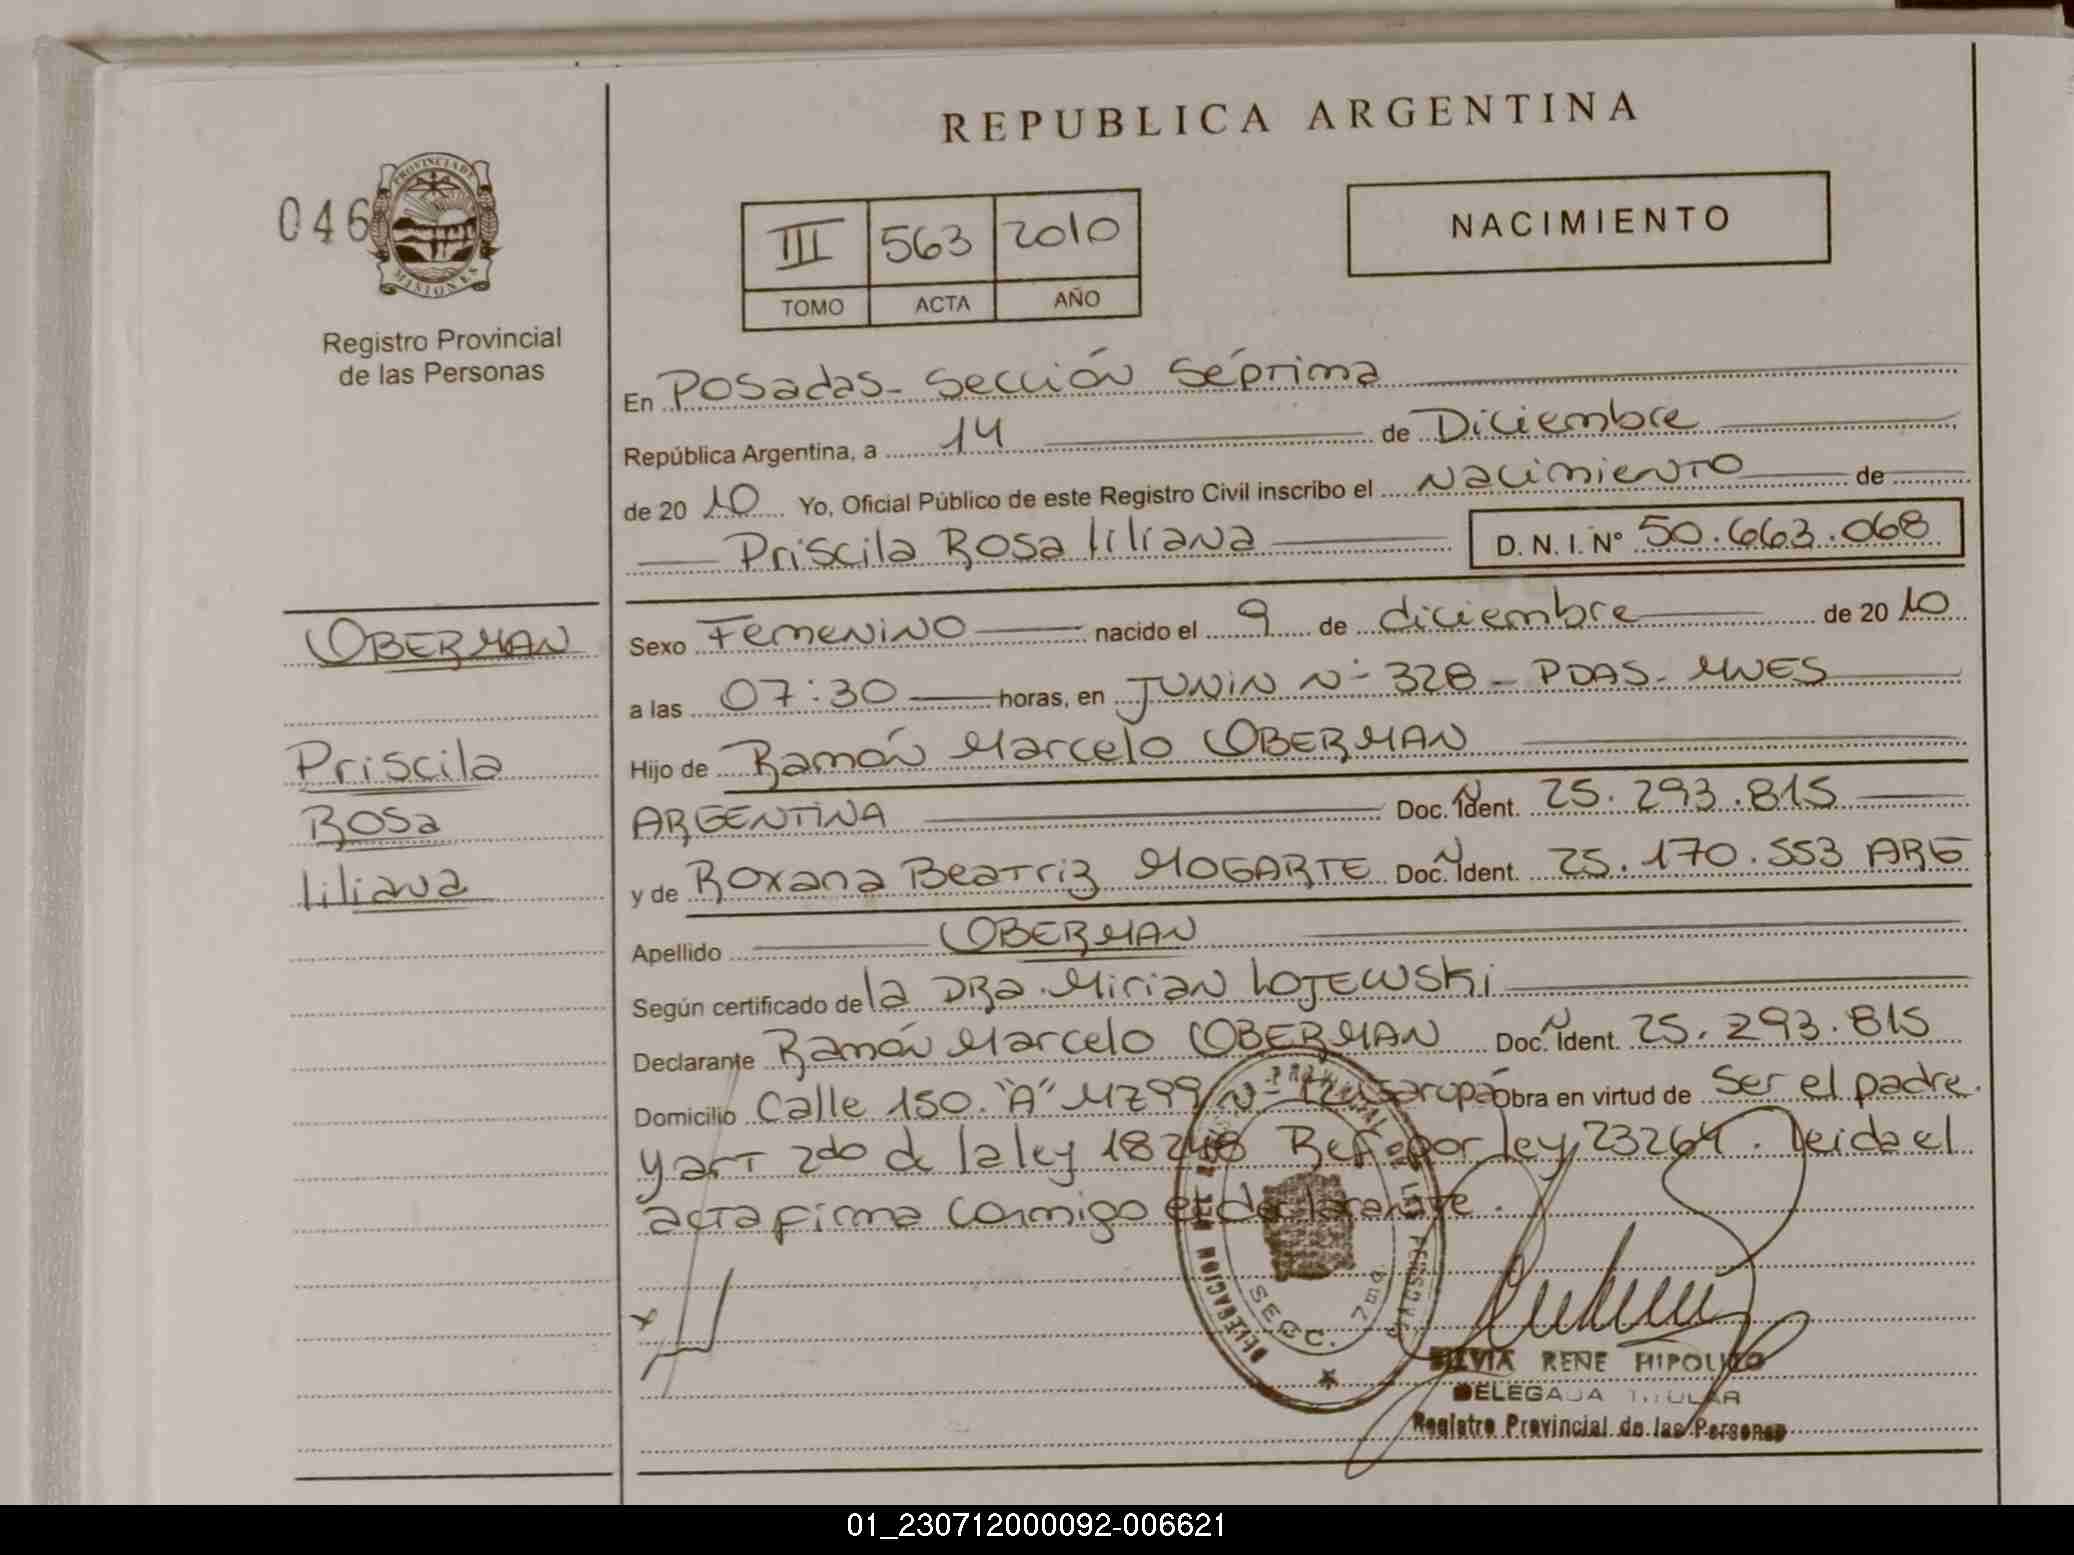 REPUBLICA ARGENTINA
046
PROVINCIA DE MISIONES
Registro Provincial
de las Personas
III 563 2010
TOMO ACTA AÑO
NACIMIENTO
En Posadas - Sección Séptima
República Argentina, a 14 de Diciembre
de 20 10 Yo, Oficial Público de este Registro Civil inscribo el Nacimiento de
Priscila Rosa Liliana D. N. I. N° 50.663.068
OBERMAN
Priscila
Rosa
Liliana
Sexo Femenino nacido el 9 de diciembre de 20 10
a las 07:30 horas, en JUNIN N° 328 - PDAS - MNES
Hijo de Ramón Marcelo OBERMAN
ARGENTINA Doc. Ident. 25.293.815
y de Roxana Beatriz MOGARTE Doc. Ident. 25.170.553 ARG
Apellido OBERMAN
Según certificado de la DRa. Mirian LOJEWSKI
Declarante Ramón Marcelo OBERMAN Doc. Ident. 25.293.815
Domicilio Calle 150. "A" MZ 99 N° Obra en virtud de Ser el padre.
y art 2do de la ley 18248 Ref. por ley 23264. Leida el
acta firma conmigo el declarante.
DELEGACION DEL PROVINCIAL DE LAS PERSONAS
SECC. 7ma
SILVIA RENE HIPOLITO
DELEGADA TITULAR
Registro Provincial de las Personas
01_230712000092-006621